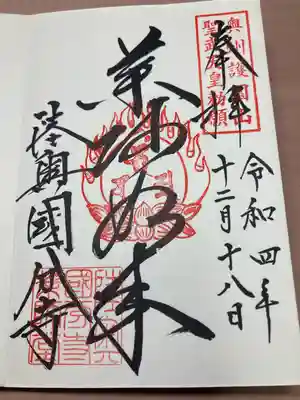 奉拝
令和四年
十二月十八日
奥州護国山
聖武天皇勅願
薬師如来
陸奥國分寺